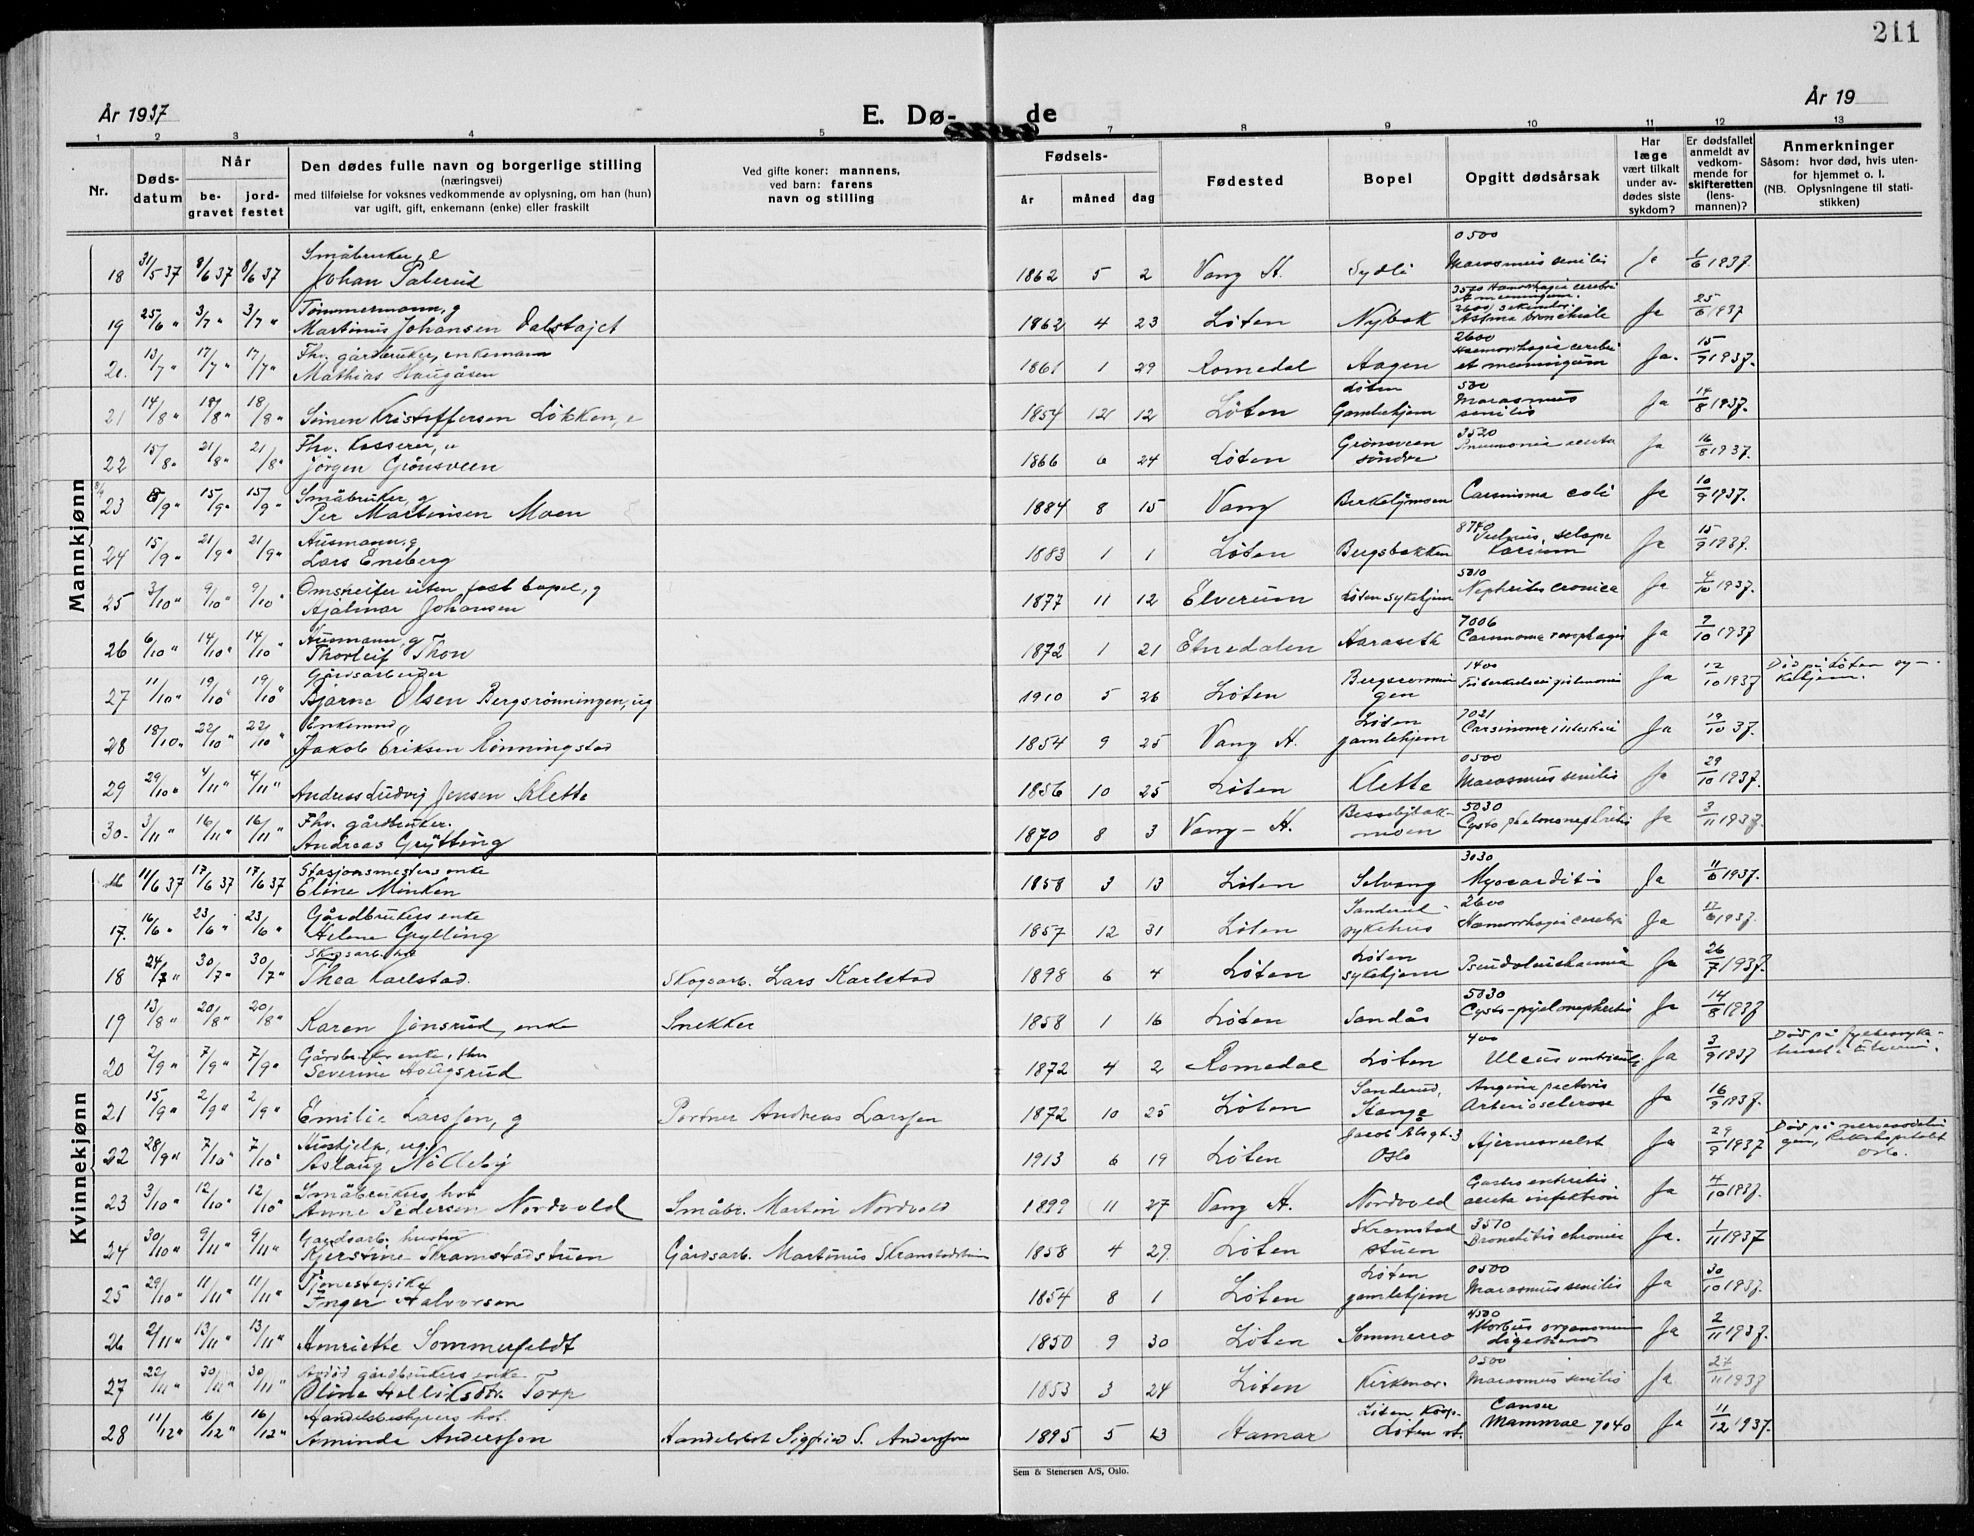 211
År 1937
E. Dø-
de
År 19
1 2 3 4 5 7 8 9 10 11 12 13
Nr.
Døds-
datum
Når
be-
gravet
jord-
festet
Den dødes fulle navn og borgerlige stilling
(næringsvei)
med tilføielse for voksnes vedkommende av oplysning, om han (hun)
var ugift, gift, enkemann (enke) eller fraskilt
Ved gifte koner: mannens,
ved barn: farens
navn og stilling
Fødsels-
år måned dag
Fødested
Bopel
Opgitt dødsårsak
Har
læge
vært tilkalt
under av-
dødes siste
sykdom?
Er dødsfallet
anmeldt av
vedkom-
mende for
skifteretten
(lens-
mannen)?
Anmerkninger
Såsom: hvor død, hvis uten-
for hjemmet o. l.
(NB. Oplysningene til stati-
stikken)
Mannkjønn
Småbruker, e 0500
18 31/5 37 8/6 37 8/6 37 Johan Paberud 1862 5 2 Vang H. Sydli Marasmus senilis Ja 1/6 1937.
Tømmermann, g
19 25/6 " 3/7 " 3/7 " Martinus Johansen Dalstajet 1862 4 23 Løten Nybak Astma bronchiale Ja 25/6 1937
Fhv. gårdbruker, enkemann 2600 Haemorrhagia cerebri
20. 13/7 " 17/7 " 17/7 " Mathias Haugåsen 1861 1 29 Romedal Hagen et meningum Ja. 15/7 1937.
Løten 500 Marasmus
21 14/8 " 18/8 " 18/8 " Simen Kristoffersen Løkken, e 1854 12 12 Løten Gamlehjem senilis Ja 14/8 1937.
Fhv. Kasserer, Grønsveen 3520
22 15/8 " 21/8 " 21/8 " Jørgen Grønsveen 1866 6 24 Løten søndre Pneumonia acuta Ja 16/8 1937.
Småbruker, g
23 8/9 " 15/9 " 15/9 " Per Martinsen Moen 1884 8 15 Vang Carsinoma coli Ja 10/9 1937.
Husmann, g 8740
24 15/9 " 21/9 " 21/9 " Lars Eneberg 1883 1 1 Løten Bergsbakken Ja 15/9 1937.
Omstreifer uten fast bopel, g 5010
25 3/10 " 9/10 " 9/10 " Hjalmar Johansen 1877 11 12 Elverum Løten sykehjem Nephritis cronica Ja 4/10 1937
Husmann, g 7006
26 6/10 " 14/10 " 14/10 " Thorleif Thon 1872 1 21 Etnedalen Haraseth Carsinoma oesophagi Ja 7/10 1937
Gårdsarbeider 1400 Død på Løten sy-
27 11/10 " 19/10 " 19/10 " Bjarne Olsen Bergsrønningen, ug 1910 5 26 Løten Bergsrønningen Ja 12/10 1937 kehjem.
Enkemand Løten 7021
28 18/10 " 22/10 " 22/10 " Jakob Eriksen Rønningstad 1854 9 25 Vang H. gamlehjem Carsinoma intestini Ja 19/10 37.
0500
29 29/10 " 4/11 " 4/11 " Andreas Ludvig Jensen Klette 1856 10 25 Løten Klette Marasmus senilis Ja 29/10 1937.
Fhv. gårdbruker. 5030
30. 3/11 " 16/11 " 16/11 " Andreas Grytting 1870 8 3 Vang - H. Cysto pyelonephritis Ja 3/11 1937.
Kvinnekjønn
Stasjonsmesters enke 3030
16 11/6 37 17/6 37 17/6 37 Eline Minken 1858 3 13 Løten Solvang Myocarditis Ja 11/6 1937.
Gårdbrukers enke Sanderud 2600
17. 16/6 " 23/6 " 23/6 " Helene Grytting 1857 12 31 Løten sykehus Haemorrhagia cerebri Ja 17/6 1937.
Skogsarb. hst Løten
18 24/7 " 30/7 " 30/7 " Thea Karlstad. Skogsarb. Lars Karlstad 1898 6 4 Løten sykehjem Pseudoleukaemia Ja 26/7 1937.
5030
19 13/8 " 20/8 " 20/8 " Karen Jønsrud, enke Snekker 1858 1 16 Løten Sandås Cysto-pyelonephritis Ja 14/8 1937
Gårdbruker enke, fhv 400 Død på fylkessyke-
20 2/9 " 7/9 " 7/9 " Severine Haugsrud 1872 4 2 Romedal Løten Ulcus ventriculi Ja 3/9 1937 huset i Elverum.
Sanderud, Angina pectoris
21 15/9 " 2/9 " 2/9 " Emilie Larssen, g Portner Andreas Larssen 1872 10 25 Løten Stange Arteriosclerose Ja 16/9 1937.
Hushjelp, ug. Jacob Alsgt. 3 Død på nerveavdelin
22 28/9 " 7/10 " 7/10 " Aslaug Nølleby 1913 6 19 Løten Oslo Hjernesvulst Ja 29/9 1937 gen, Rikshospitalet
Oslo.
Småbrukers hst Gastro enteritis
23 3/10 " 12/10 " 12/10 " Anne Pedersen Nordvold Småbr. Martin Nordvold 1899 11 27 Vang H. Nordvold acuta infektion Ja 4/10 1937.
Gardsarb. hustru Skramstad 3510
24 30/10 " 9/11 " 9/11 " Kjerstine Skramstadstuen Gårdsarb. Martinus Skramstadstuen 1858 4 29. Løten stuen Bronchitis chronica Ja. 1/11 1937
Tjenestepike Løten 0500
25 29/10 " 11/11 " 11/11 " Inger Halvorsen 1854 8 1 Løten gamlehjem Marasmus senilis Ja 30/10 1937.
4500 Morbus organorum
26 2/11 " 13/11 " 13/11 " Henriette Sommerfeldt 1850 9 30 Løten Sommerro Ja 2/11 1937.
Avdød gårdbrukers enke 0500
27 22/11 " 30/11 " 30/11 " Oline Helliksdtr. Torp 1853 3 24 Løten Kirkenær. Marasmus senilis Ja 27/11 1937
Handelsbestyrers hst. Løten Koop. Canser
28 11/12 " 16/12 " 16/12 " Aminda Anderssen Handelsbest Sigfried S. Anderssen 1895 5 13 Hamar Løten st. Mammae 7040 Ja 11/12 1937.
Sem & Stenersen A/S, Oslo.